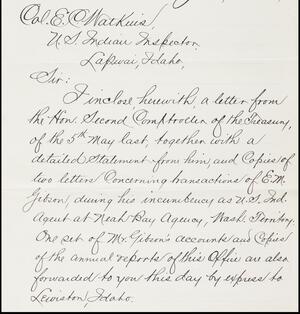 Col. E. C. Watkins
U. S. Indian Inspector
Lapwai, Idaho,
Sir:
I inclose, herewith, a letter from
the Hon. Second Comptroller of the Treasury,
of the 5th May last, together with a
detailed Statement from him, and Copies of
two letters Concerning transactions of E. M.
Gibson, during his incumbency as U. S. Ind.
Agent at Neah Bay Agency, Wash. Territory.
One set of Mr. Gibson's accounts and Copies
of the annual reports of this Office are also
forwarded to you this day by express to
Lewiston, Idaho.